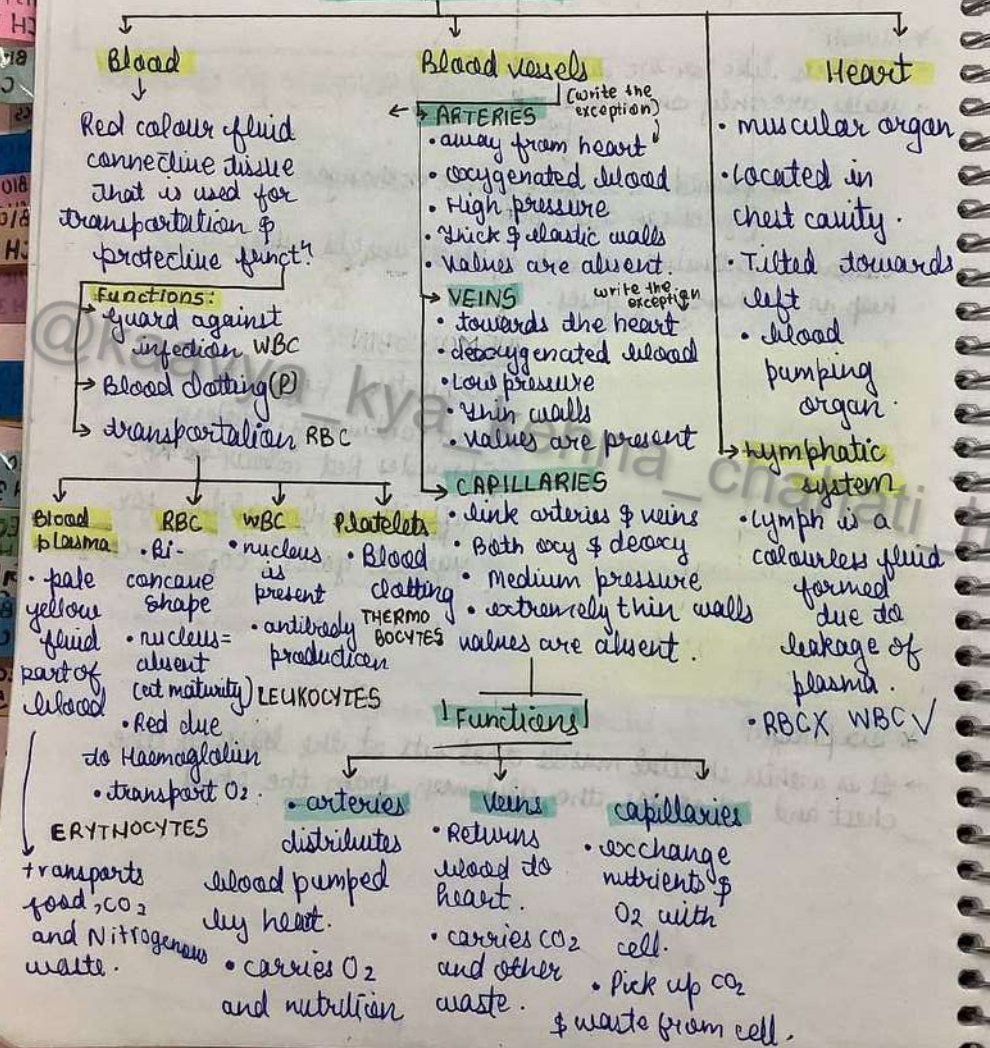 Blood
Red colour fluid
connective tissue
that is used for
transportation &
protective functⁿ
Functions:
Guard against
infection WBC
Blood clotting (P)
transportation RBC
Blood
plasma
• pale
yellow
fluid
part of
blood
transports
food, CO2
and Nitrogenous
waste.
RBC
• Bi-
concave
shape
• nucleus=
absent
(at maturity)
• Red due
to Haemoglobin
• transport O2.
ERYTHOCYTES
WBC
• nucleus
is
present
• antibody
production
LEUKOCYTES
Platelets
• Blood
clotting
THERMO
BOCYTES
Blood vessels
(write the
exception)
ARTERIES
• away from heart
• oxygenated blood
• High pressure
• thick & elastic walls
• values are absent.
VEINS
write the
exception
• towards the heart
• deoxygenated blood
• Low pressure
• thin walls
• values are present
CAPILLARIES
• link arteries & veins
• Both oxy & deoxy
• Medium pressure
• extremely thin walls
values are absent.
Functions
• arteries
distributes
blood pumped
by heart.
• carries O2
and nutrition
veins
• Returns
blood to
heart.
• carries CO2
and other
waste.
capillaries
• exchange
nutrients &
O2 with
cell.
• Pick up CO2
& waste from cell.
Heart
• muscular organ
• Located in
chest cavity.
• Tilted towards
left
• blood
pumping
organ.
Lymphatic
system
• Lymph is a
colourless fluid
formed
due to
leakage of
plasma.
• RBC X WBC ✓
@kaavya_kya_kehna_chahati_h